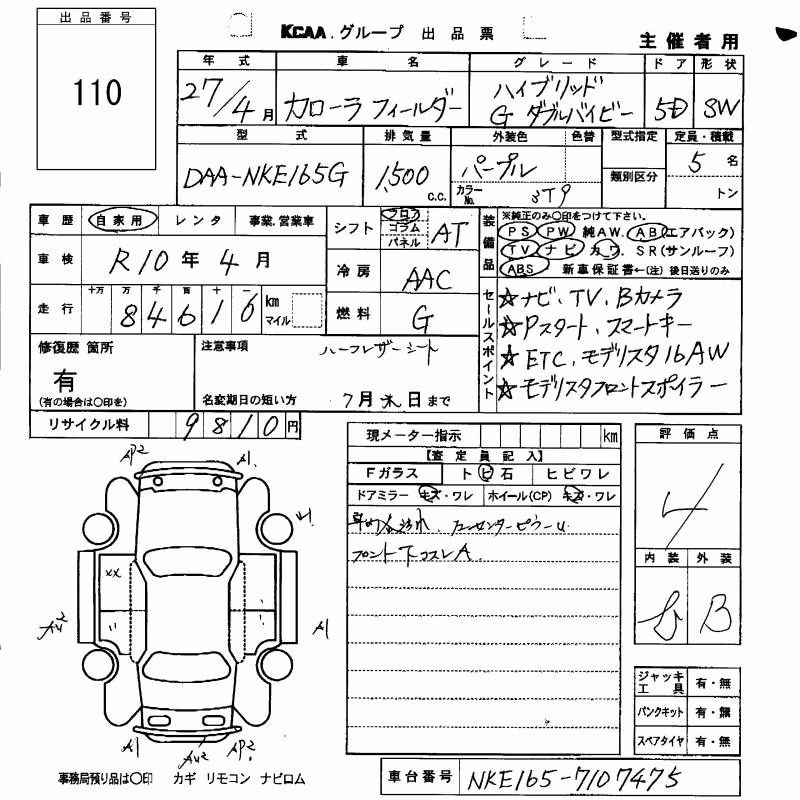 出品番号
110
KCAA.グループ 出品票
主催者用
年式 車名 グレード ドア 形状
27/4月 カローラ フィールダー ハイブリッド G ダブルバイビー 5D SW
型式 排気量 外装色 色替 型式指定 定員・積載
DAA-NKE165G 1,500 c.c. パープル カラーNo. 3T9 類別区分 5名 トン
車歴 自家用 レンタ 事業.営業車
車検 R10年4月
走行 十万 万 千 百 十 一
84616 km マイル
シフト フロア コラム パネル AT
冷房 AAC
燃料 G
装備品 ※純正のみ〇印をつけて下さい。
PS PW 純AW. AB(エアバック)
TV ナビ カワ. SR(サンルーフ)
ABS 新車保証書←(注)後日送りのみ
セールスポイント
☆ナビ、TV、Bカメラ
☆Pスタート、スマートキー
☆ETC、モデリスタ16AW
☆モデリスタフロントスポイラー
修復歴 箇所
有
(有の場合は〇印を)
注意事項 ハーフレザーシート
名変期日の短い方 7月末日まで
リサイクル料 9810円
現メーター指示 km
【査定員記入】
Fガラス トビ石 ヒビワレ
ドアミラー キズ・ワレ ホイール(CP) キズ・ワレ
フロント下コスレA.
評価点
4
内装 外装
B
AP2 A1.
XX
AU2 A1
A1 AU2 AP2
ジャッキ工具 有・無
パンクキット 有・無
スペアタイヤ 有・無
事務局預り品は〇印 カギ リモコン ナビロム
車台番号 NKE165-7107475